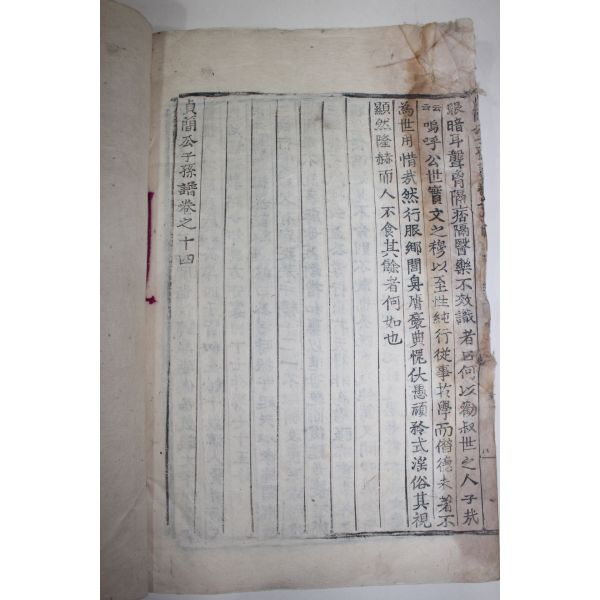 眼暗耳聾胷隔痞隔醫藥不效識者曰何以勸叔世之人子哉
云嗚呼公世實文之穆以至性純行從事於學而僭德未著不
為世用惜哉然行服鄉閭身膺褒典慌伏愚頑矜式淫俗其視
顯然隆赫而人不食其餘者何如也
貞簡公子孫譜卷之十四